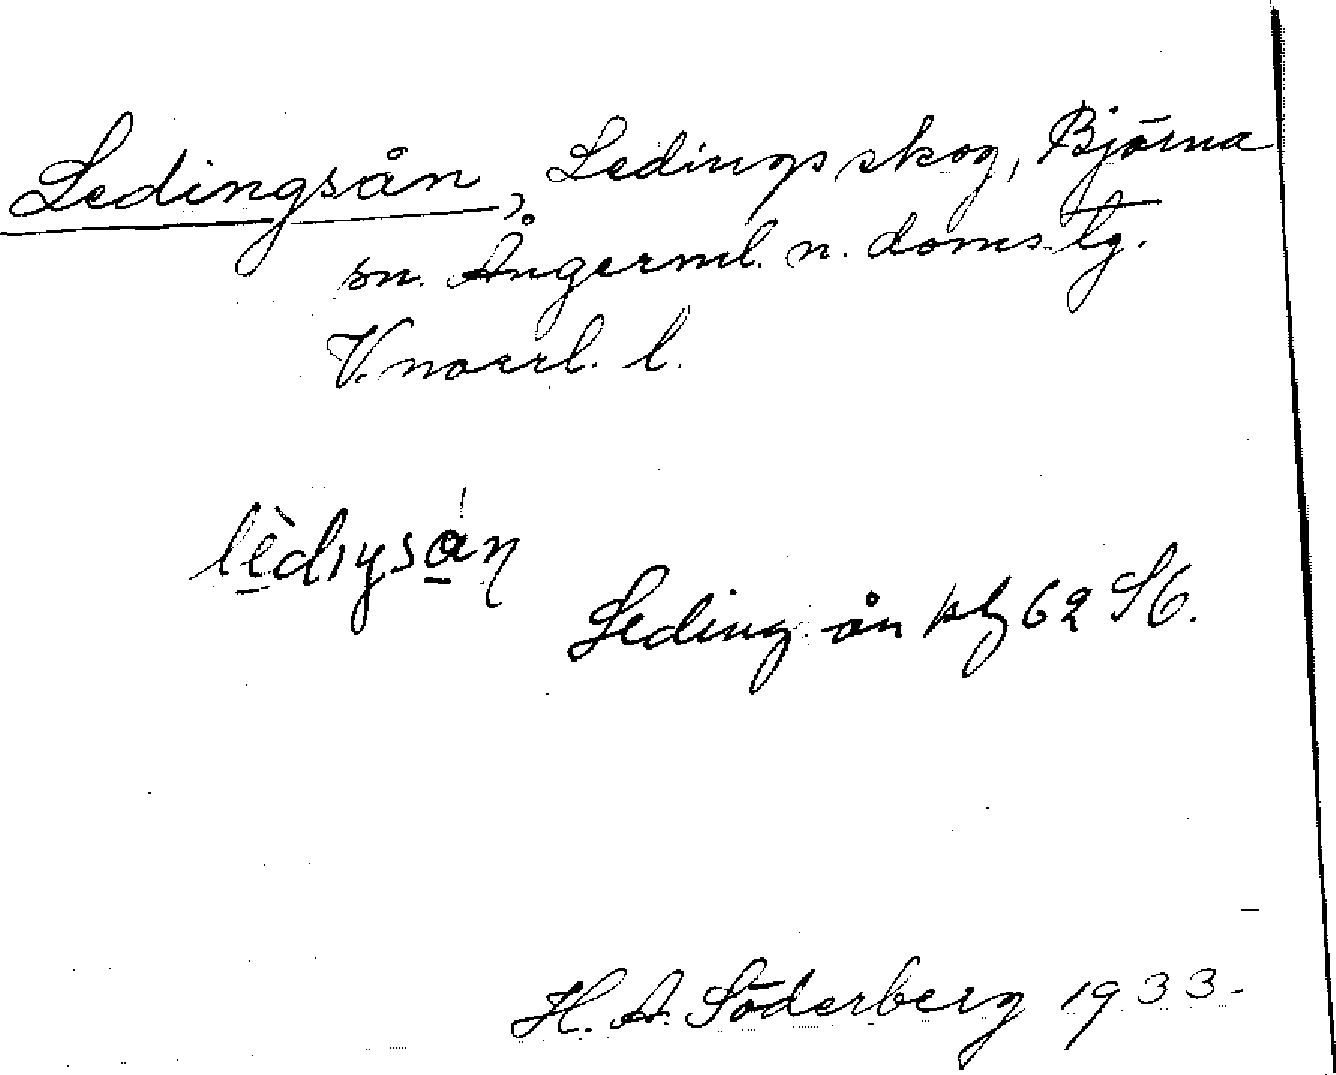 Ledingsån, Ledingsskog, Björna
sn. Ångerml. n. doms.lg.
V.norrl. l.
lèdıŋsån
Leding-ån kbl 62 SV.
H. A. Söderberg 1933.